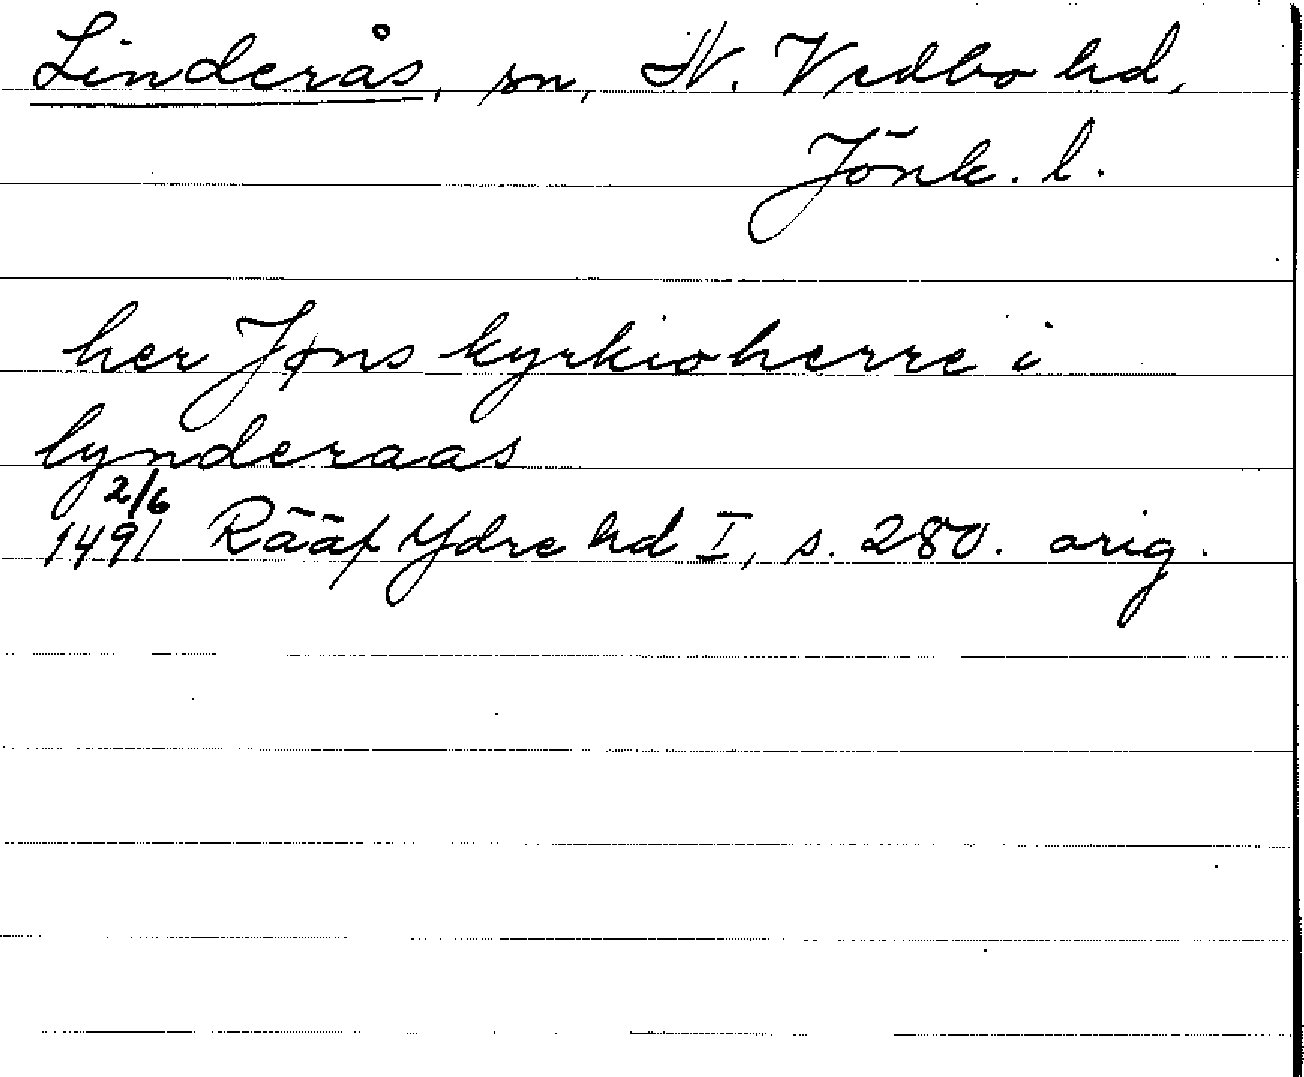 Linderås, sn, N. Vedbo hd,
Jönk. l.
her Jøns kyrkioherre i
lynderaas
2/6
1491 Rääf Ydre hd I, s. 280. orig.